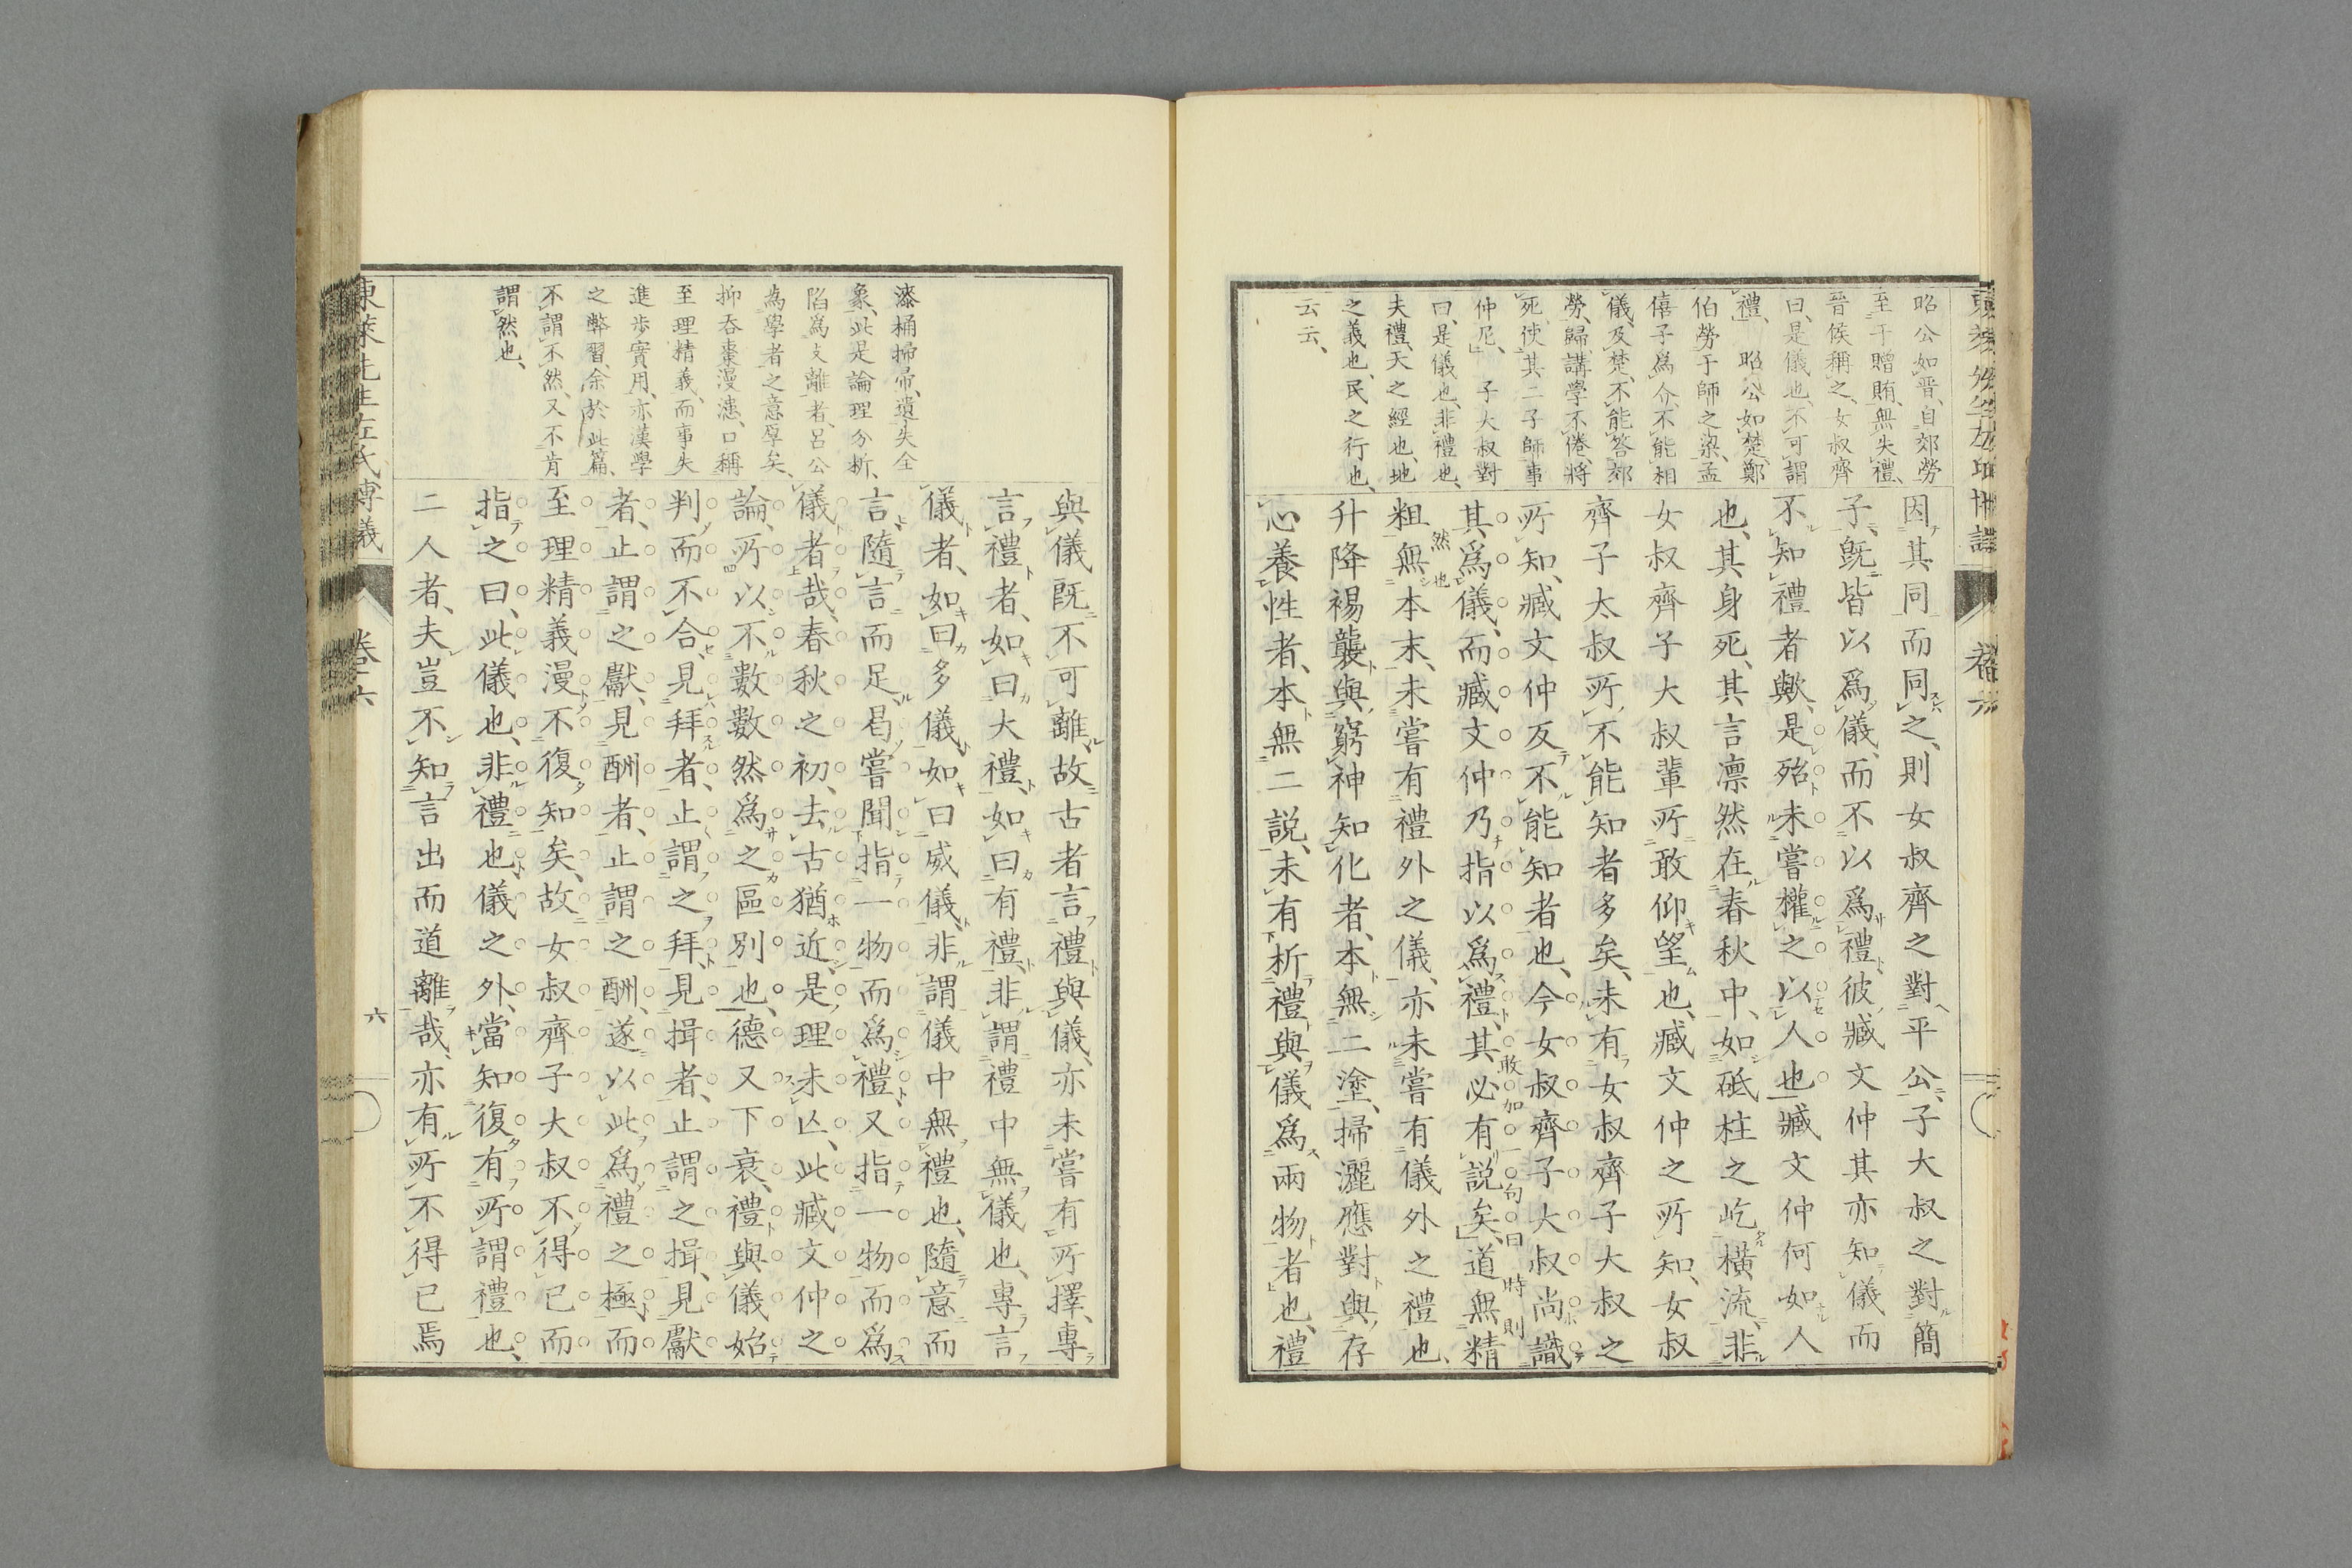 昭公如晋、自郊勞
至于贈賄、無失禮、
晉侯稱之、女叔齊
曰、是儀也、不可謂
禮、　昭公如楚、鄭
伯勞于師之梁、孟
僖子爲介、不能相
儀、及楚、不能答郊
勞、歸講學不倦、將
死、使其二子師事
仲尼、　子大叔對
曰、是儀也、非禮也、
夫禮、天之經也、地
之義也、民之行也、
云云、
因其同而同之、則女叔齊之對平公、子大叔之對簡
子、既皆以爲儀、而不以爲禮、彼臧文仲其亦知儀、而
不知禮者歟、是殆未嘗權之以人也、臧文仲何如人
也、其身死、其言凛然在春秋中、如砥柱之屹橫流、非
女叔齊子大叔輩所敢仰望也、臧文仲之所知、女叔
齊子太叔所不能知者多矣、未有女叔齊子大叔之
所知、臧文仲反不能知者也、今女叔齊子大叔尚識
其爲儀、而臧文仲乃指以爲禮、其必有説矣、道無精
敢加一句曰時則
然也
粗、無本末、未嘗有禮外之儀、亦未嘗有儀外之禮也、
升降裼襲、與窮神知化者、本無二塗、掃灑應對、與存
心養性者、本無二説、未有析禮與儀爲兩物者也、禮
漆桶掃帚、遺失全
象、此是論理分析、
陷爲支離者、呂公
為學者之意厚矣、
抑吞棗漫漶、口稱
至理精義、而事失
進歩實用、亦漢學
之弊習、余於此篇、
不謂不然、又不肯
謂然也、
與儀既不可離、故古者言禮與儀、亦未嘗有所擇、專
言禮者、如曰大禮、如曰有禮、非謂禮中無儀也、專言
儀者、如曰多儀、如曰威儀、非謂儀中無禮也、隨意而
言、隨言而足、曷嘗聞指一物而爲禮、又指一物而爲
儀者哉、春秋之初、去古猶近、是理未亾、此臧文仲之
論、所以不數數然爲之區別也、德又下衰、禮與儀始
判而不合、見拜者、止謂之拜、見揖者、止謂之揖、見獻
者、止謂之獻、見酬者、止謂之酬、遂以此爲禮之極、而
至理精義漫不復知矣、故女叔齊子大叔不得已而
指之曰、此儀也、非禮也、儀之外、當知復有所謂禮也、
二人者、夫豈不知言出而道離哉、亦有所不得已焉
東萊先生左氏博議
卷六
六